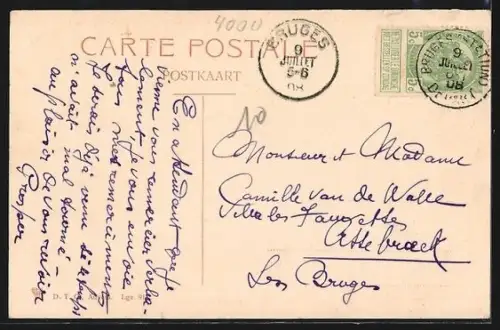 4000
CARTE POSTALE
POSTKAART
BRUGES
9
JUILLET
5-6
08
BRUGES
9
JUILLET
08
10
En attendant que je
vienne vous remercier verba-
lement, je vous envoie
tous mes remerciments
Je serais déjà venu si le temps
n'avait mal tourné –
au plaisir de vous revoir
Prosper
Monsieur et Madame
Camille van de Walle
Villa les Fauvettes
Assebrouck
Lez Bruges